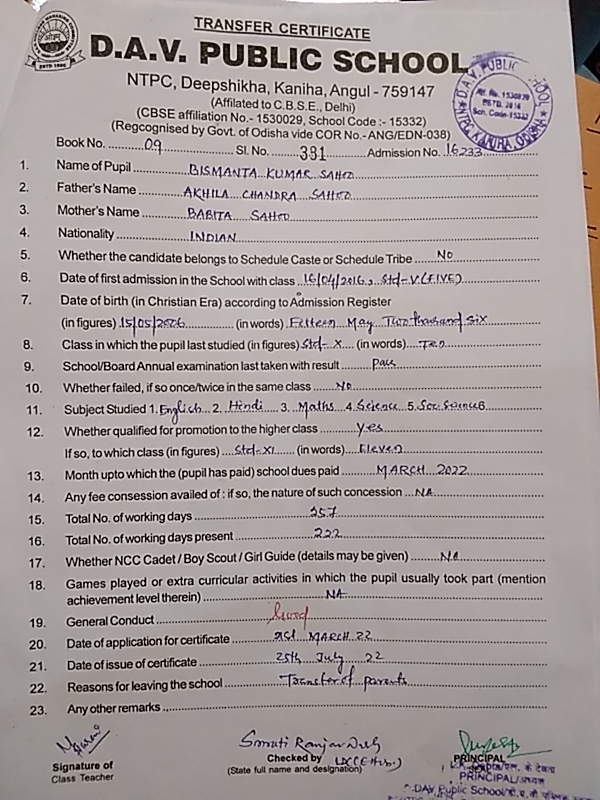 TRANSFER CERTIFICATE
D.A.V. PUBLIC SCHOOL
NTPC, Deepshikha, Kaniha, Angul - 759147
(Affiliated to C.B.S.E., Delhi)
(CBSE affiliation No.- 1530029, School Code :- 15332)
(Regcognised by Govt. of Odisha vide COR No.-ANG/EDN-038)
D.A.V. PUBLIC SCHOOL
NTPC KANIHA, ODISHA
Book No. 09 Sl. No. 381 Admission No. 16233
1. Name of Pupil BISMANTA KUMAR SAHOO
2. Father's Name AKHILA CHANDRA SAHOO
3. Mother's Name BABITA SAHOO
4. Nationality INDIAN
5. Whether the candidate belongs to Schedule Caste or Schedule Tribe NO
6. Date of first admission in the School with class 15/04/2016, Std-V (FIVE)
7. Date of birth (in Christian Era) according to Admission Register
(in figures) 15/05/2006 (in words) Fifteen May Two thousand six
8. Class in which the pupil last studied (in figures) Std-X (in words) Ten
9. School/Board Annual examination last taken with result Pass
10. Whether failed, if so once/twice in the same class No
11. Subject Studied 1. English 2. Hindi 3. Maths 4. Science 5. Soc. Science 6.
12. Whether qualified for promotion to the higher class Yes
If so, to which class (in figures) Std-XI (in words) Eleven
13. Month upto which the (pupil has paid) school dues paid MARCH 2022
14. Any fee consession availed of : if so, the nature of such concession NA
15. Total No. of working days 257
16. Total No. of working days present 222
17. Whether NCC Cadet / Boy Scout / Girl Guide (details may be given) NA
18. Games played or extra curricular activities in which the pupil usually took part (mention
achievement level therein) NA
19. General Conduct Good
20. Date of application for certificate MARCH 22
21. Date of issue of certificate 25th July 22
22. Reasons for leaving the school Transfer of parents
23. Any other remarks
Smruti Ranjan
Signature of
Class Teacher
Checked by
(State full name and designation)
PRINCIPAL
PRINCIPAL
DAV Public School